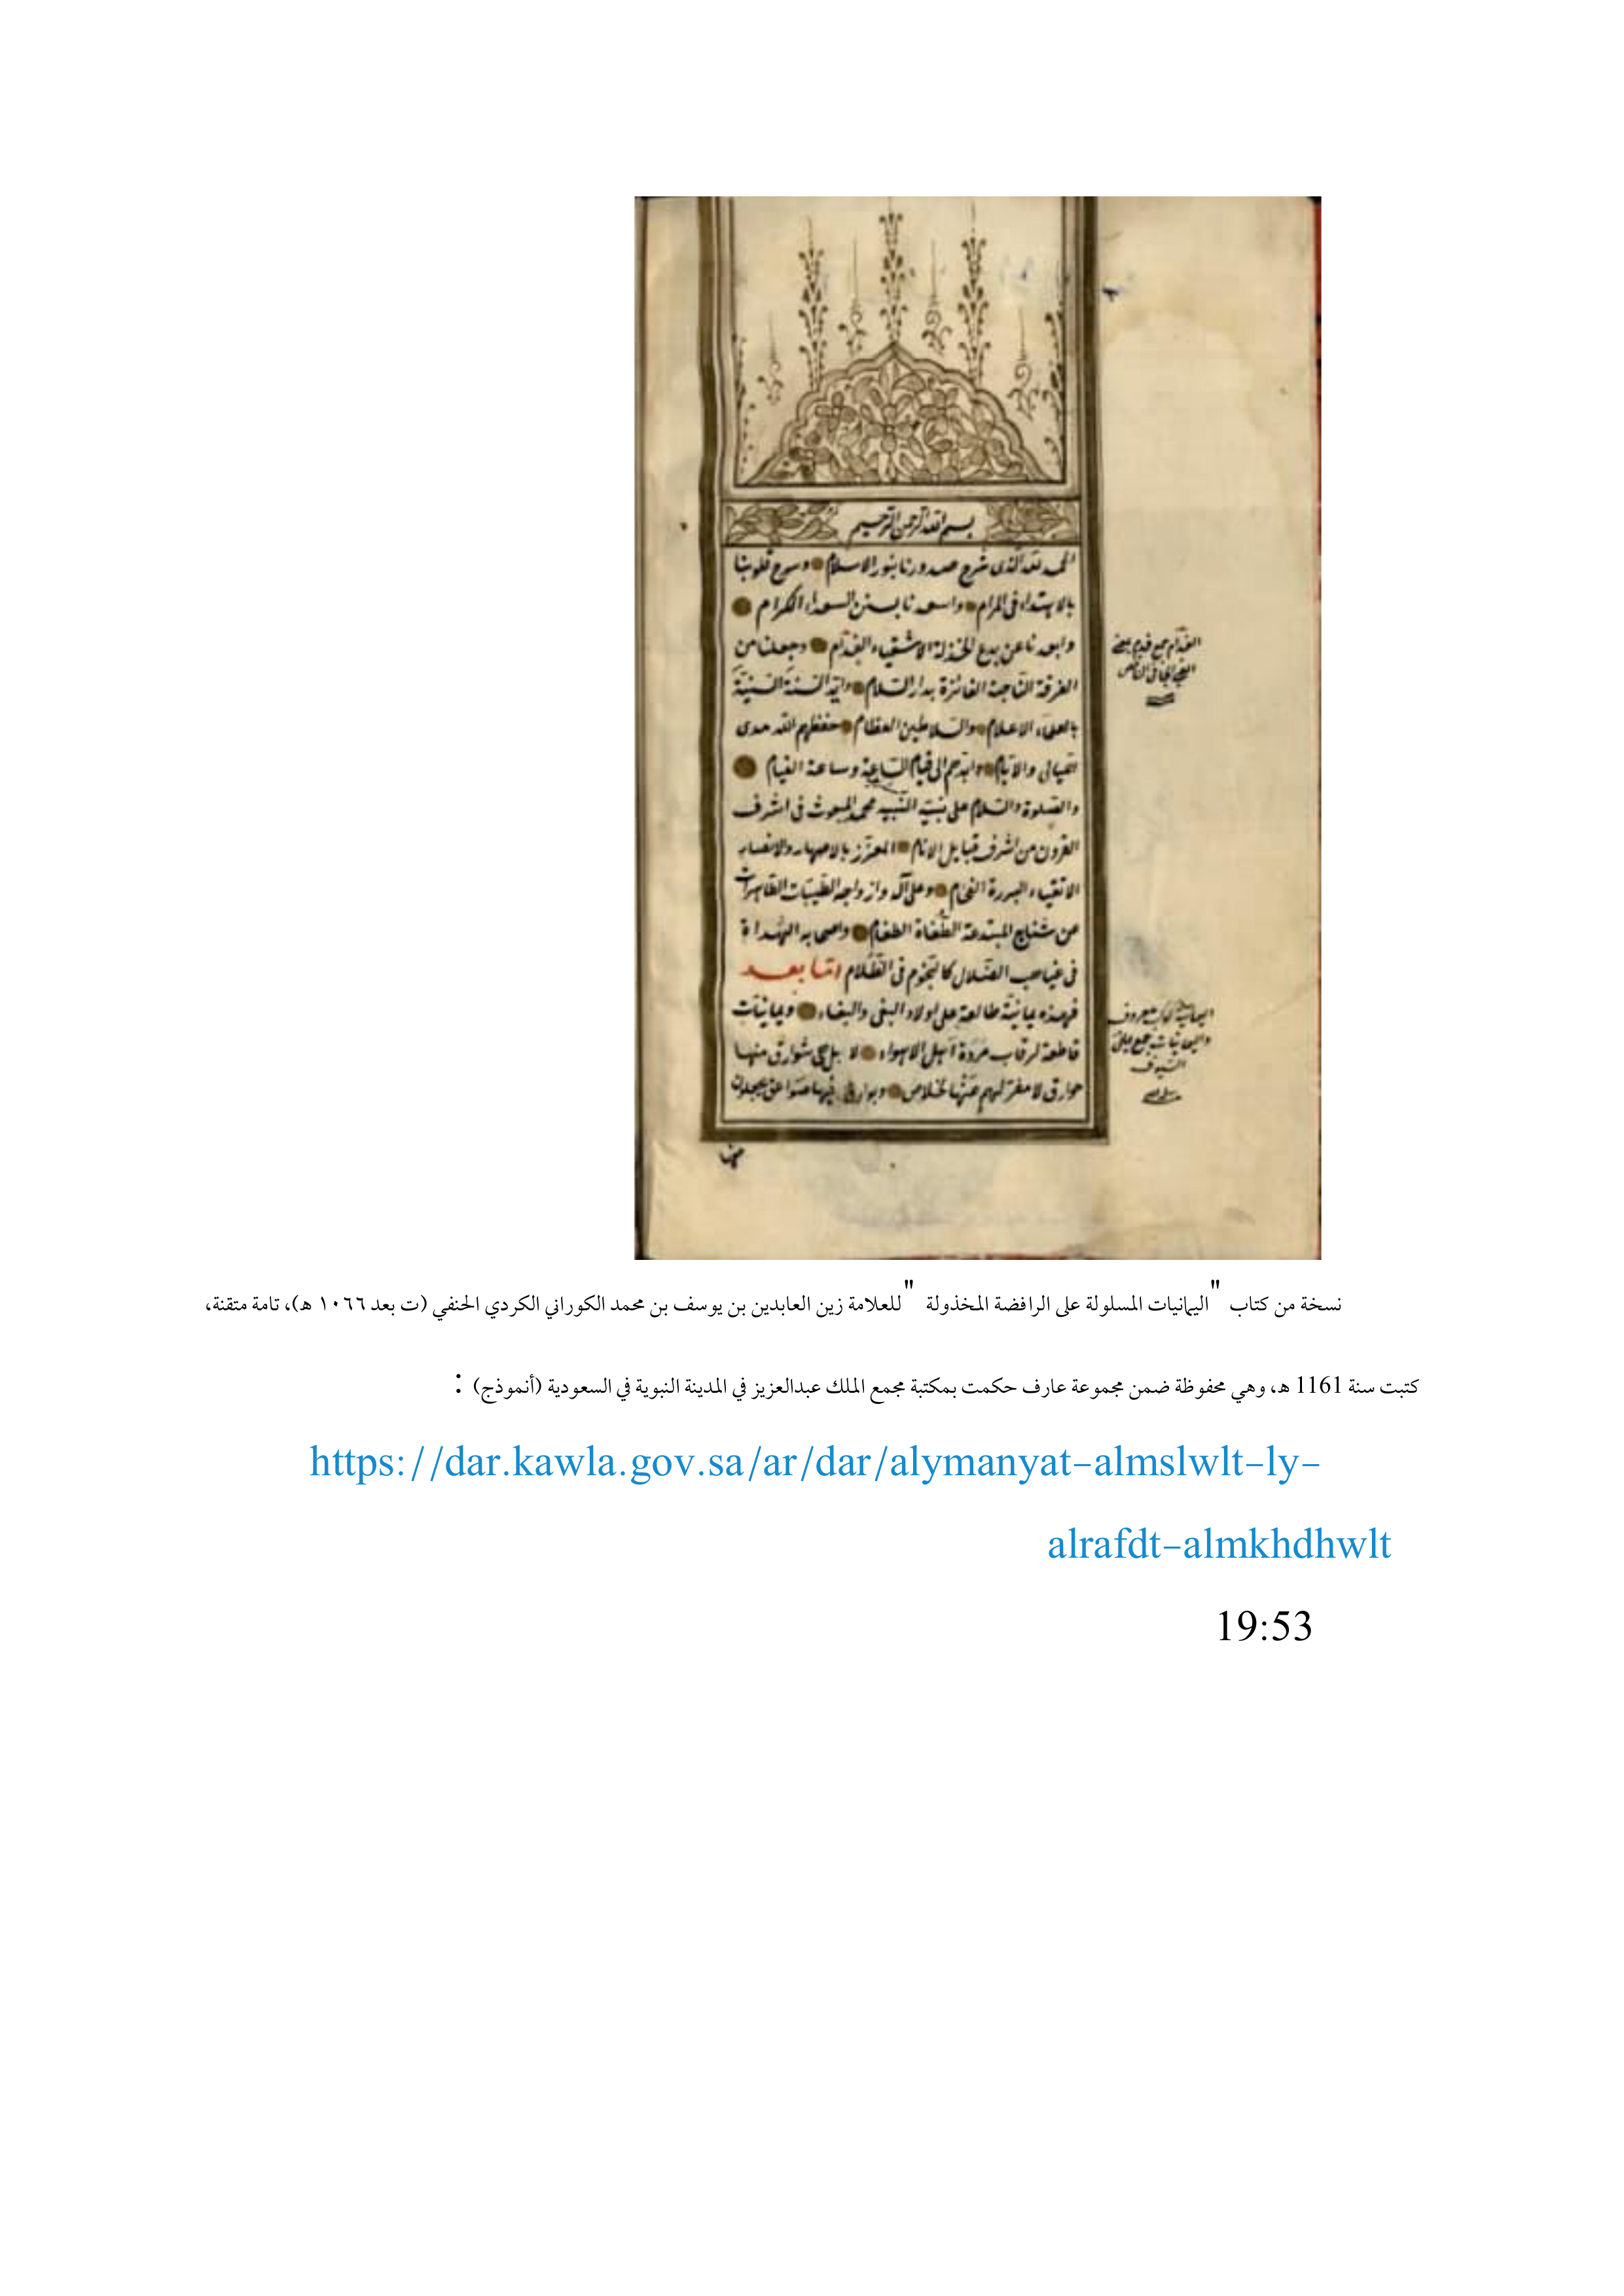 بسم الله الرحمن الرحيم
الحمد لله الذى شرح صدورنا بنور الاسلام وسرح قلوبنا
بالاهتداء فى المرام واسعدنا بسنن السعداء الكرام
وابعدنا عن بدع الخذلة الاشقياء الفدام وجعلنا من
الفرقة الناجية الفائزة بدار السلام وايد السنة السنية
بالعلماء الاعلام والسلاطين العظام حفظهم الله مدى
الليالى والايام وابدهم الى قيام الساعة وساعة القيام
والصلوة والسلام على نبيه النبيه محمد المبعوث فى اشرف
القرون من اشرف قبايل الانام المعزز بالاصهار والانصار
الاتقياء البررة الفخام وعلى آله وازواجه الطيبات الطاهرات
عن شنايع المبتدعة الطغاة الطغام واصحابه الهداة
فى غياهب الضلال كالنجوم فى الظلام اما بعد
فهذه يمانية طالعة على اولاد البغى والبغاء ويمانيات
قاطعة لرقاب مردة اهل الاهواء لا بل هى شوارق منها
حوارق لا مفر لهم عنها لخلاص وبوارق فيها صواعق يجعلون
الفدام جمع فدم
السيوف
نسخة من كتاب "اليمانيات المسلولة على الرافضة المخذولة" للعلامة زين العابدين بن يوسف بن محمد الكوراني الكردي الحنفي (ت بعد ١٠٦٦ هـ)، تامة متقنة،
كتبت سنة 1161 هـ، وهي محفوظة ضمن مجموعة عارف حكمت بمكتبة مجمع الملك عبدالعزيز في المدينة النبوية في السعودية (أنموذج) :
https://dar.kawla.gov.sa/ar/dar/alymanyat-almslwlt-ly-
alrafdt-almkhdhwlt
19:53